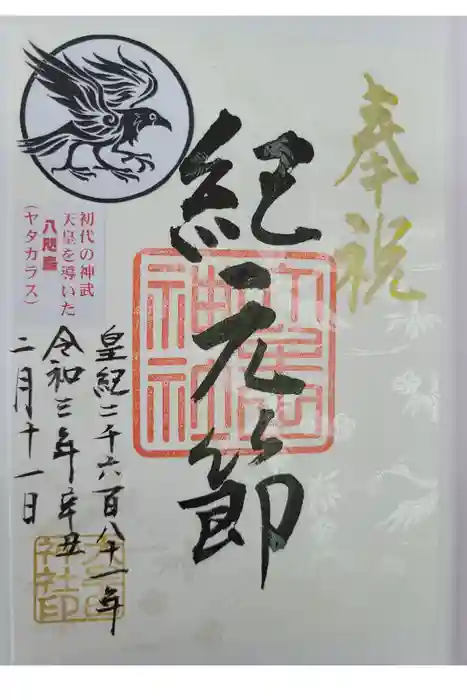 奉祝
紀元節
初代の神武
天皇を導いた
八咫烏
（ヤタカラス）
皇紀二千六百八十一年
令和三年辛丑
二月十一日